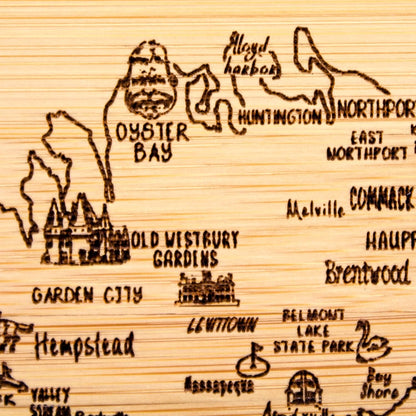 lloyd
harbor
OYSTER
BAY
HUNTINGTON
NORTHPORT
EAST
NORTHPORT
Melville
COMMACK
OLD WESTBURY
GARDENS
HAUPP
Brentwood
GARDEN CITY
LEWTTOWN
BELMONT
LAKE
STATE PARK
Hempstead
Massapequa
Bay
Shore
VALLEY